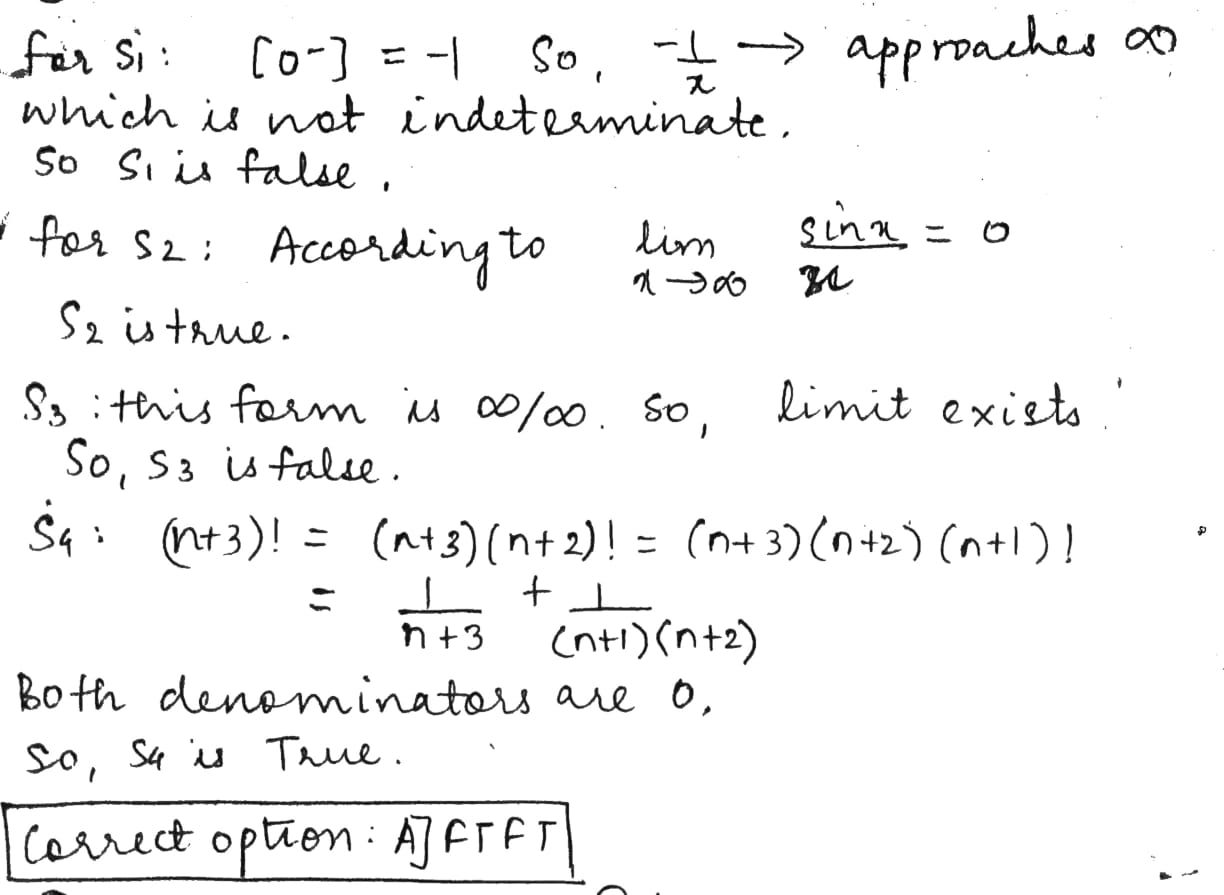 for S1: [0-] = -1 So, -1/x → approaches ∞
which is not indeterminate.
So S1 is false.
for S2: According to lim x→∞ sinx/x = 0
S2 is true.
S3: this form is ∞/∞. so, limit exists.
So, S3 is false.
S4: (n+3)! = (n+3)(n+2)! = (n+3)(n+2)(n+1)!
= 1/n+3 + 1/(n+1)(n+2)
Both denominators are 0,
So, S4 is True.
Correct option: A] FTFT